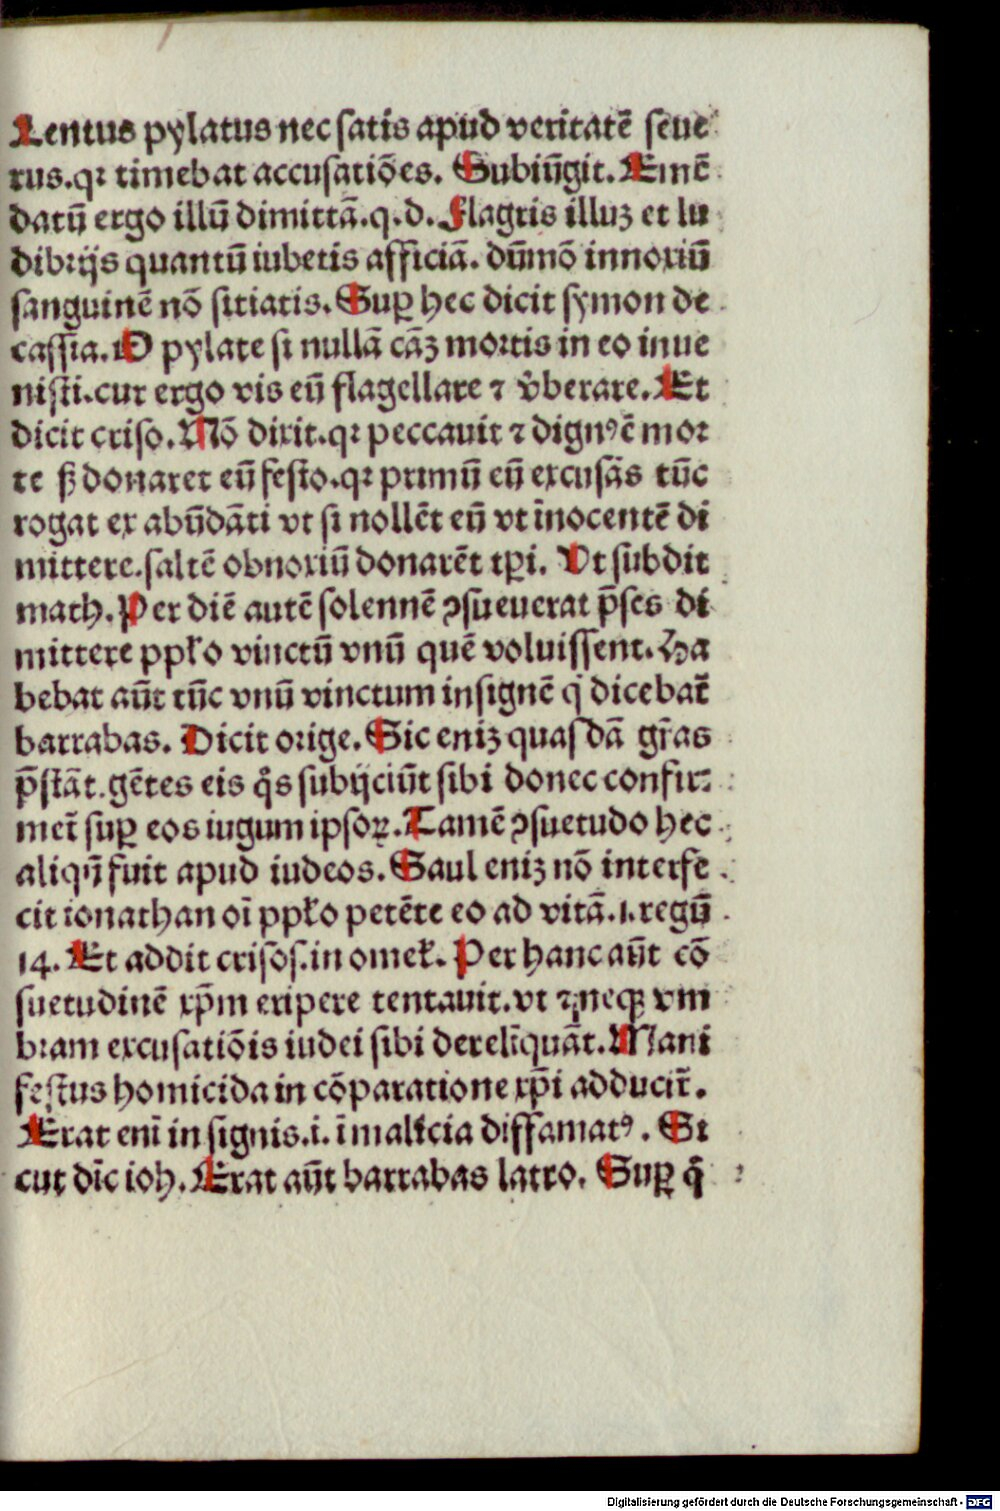 Lentus pylatus nec satis apud veritatē seue
rus.qꝛ timebat accusatiōes. Subiūgit. Emē
datū ergo illū dimittā.q.d. Flagris illuꝫ et lu
dibrijs quantū iubetis afficiā. dūmō innoxiū
sanguinē nō sitiatis. Suꝑ hec dicit symon de
cassia. O pylate si nullā cāꝫ mortis in eo inue
nisti.cur ergo vis eū flagellare ⁊ v̄berare. Et
dicit criso. Nō dixit.qꝛ peccauit ⁊ dignꝰ ē mor
te ꝭ donaret eū festo.qꝛ primū eū excusās tūc
rogat ex abūdāti vt si nollēt eū vt īnocentē di
mittere.saltē obnoxiū donarēt tꝑi. Vt subdit
math. Per diē autē solennē ꝯsueuerat p̄ses di
mittere ppło vinctū vnū quē voluissent. Ha
bebat aūt tūc vnū vinctum insignē q̇ dicebat̄
barrabas. Dicit orige. Sic eniꝫ quasdā gr̄as
p̄stāt.gētes eis q̊s subijciūt sibi donec confir-
met̄ suꝑ eos iugum ipsoꝝ. Tamē ꝯsuetudo hec
aliqn̄ fuit apud iudeos. Saul eniꝫ nō interfe
cit ionathan oī ppło petēte eo ad vitā.1.regū
14. Et addit crisos.in omeł. Per hanc aūt cō
suetudinē xp̄m eripere tentauit.vt ⁊ neqꝫ vm
bram excusatiōis iudei sibi derelīquāt. Mani
festus homicida in cōparatione xp̄i adducit̄.
Erat enī insignis.i. ī malicia diffamatꝰ. Si
cut dīc ioh. Erat aūt barrabas latro. Suꝑ q̊
Digitalisierung gefördert durch die Deutsche Forschungsgemeinschaft - DFG